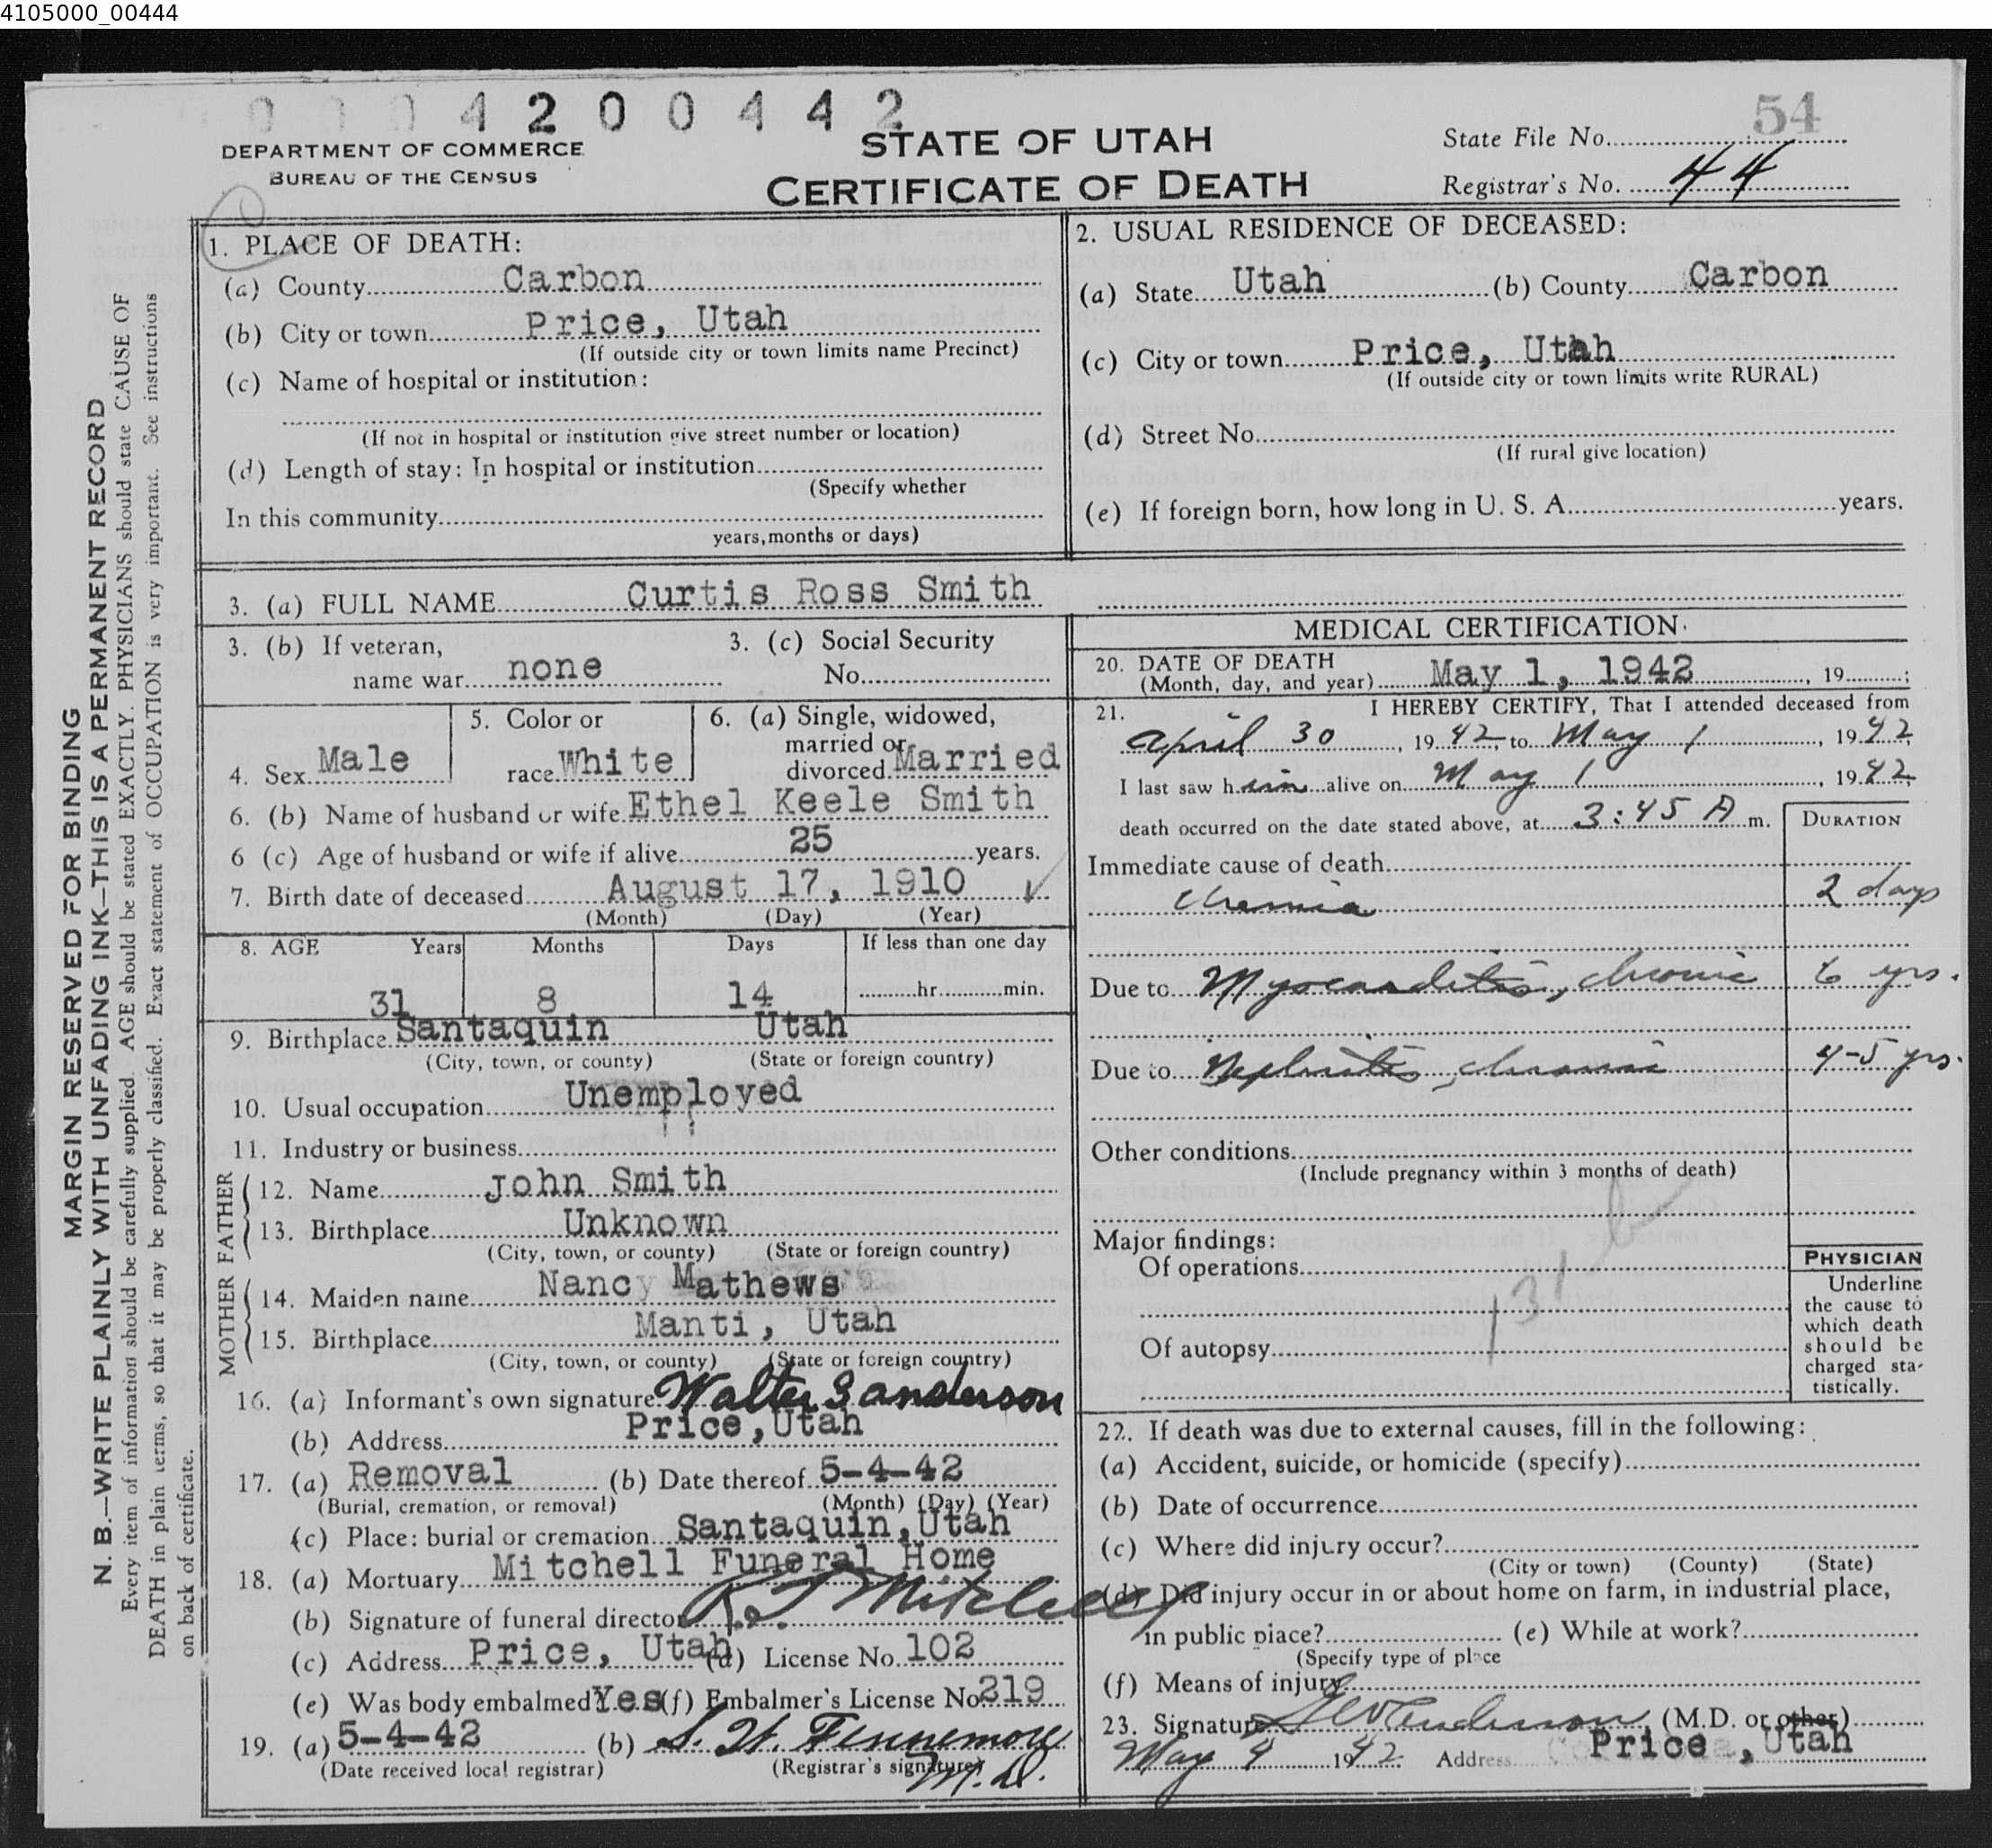 4105000_00444
0 0 0 4 2 0 0 4 4 2
54
DEPARTMENT OF COMMERCE
BUREAU OF THE CENSUS
STATE OF UTAH
CERTIFICATE OF DEATH
State File No.
Registrar's No. 44
MARGIN RESERVED FOR BINDING
N. B.—WRITE PLAINLY WITH UNFADING INK—THIS IS A PERMANENT RECORD
Every item of information should be carefully supplied. AGE should be stated EXACTLY. PHYSICIANS should state CAUSE OF
DEATH in plain terms, so that it may be properly classified. Exact statement of OCCUPATION is very important. See instructions
on back of certificate.
1. PLACE OF DEATH:
(a) County Carbon
(b) City or town Price, Utah
(If outside city or town limits name Precinct)
(c) Name of hospital or institution:
(If not in hospital or institution give street number or location)
(d) Length of stay: In hospital or institution
(Specify whether
In this community
years, months or days)
2. USUAL RESIDENCE OF DECEASED:
(a) State Utah (b) County Carbon
(c) City or town Price, Utah
(If outside city or town limits write RURAL)
(d) Street No.
(If rural give location)
(e) If foreign born, how long in U. S. A. years.
3. (a) FULL NAME Curtis Ross Smith
3. (b) If veteran, name war none
3. (c) Social Security No.
4. Sex Male
5. Color or race White
6. (a) Single, widowed, married or divorced Married
6. (b) Name of husband or wife Ethel Keele Smith
6 (c) Age of husband or wife if alive 25 years.
7. Birth date of deceased August 17, 1910 ✓
(Month) (Day) (Year)
8. AGE Years Months Days If less than one day
31 8 14 hr. min.
9. Birthplace Santaquin Utah
(City, town, or county) (State or foreign country)
10. Usual occupation Unemployed
11. Industry or business
FATHER
12. Name John Smith
13. Birthplace Unknown
(City, town, or county) (State or foreign country)
MOTHER
14. Maiden name Nancy Mathews
15. Birthplace Manti, Utah
(City, town, or county) (State or foreign country)
16. (a) Informant's own signature Walter Sanderson
(b) Address Price, Utah
17. (a) Removal (b) Date thereof 5-4-42
(Burial, cremation, or removal) (Month) (Day) (Year)
(c) Place: burial or cremation Santaquin, Utah
18. (a) Mortuary Mitchell Funeral Home
(b) Signature of funeral director Mitchell
(c) Address Price, Utah (d) License No. 102
(e) Was body embalmed Yes (f) Embalmer's License No. 219
19. (a) 5-4-42 (b) S. W. Fennemore M.D.
(Date received local registrar) (Registrar's signature)
MEDICAL CERTIFICATION.
20. DATE OF DEATH
(Month, day, and year) May 1, 1942, 19 ;
21. I HEREBY CERTIFY, That I attended deceased from
April 30, 19 42, to May 1, 19 42,
I last saw h im alive on May 1, 19 42,
death occurred on the date stated above, at 3:45 A m.
DURATION
Immediate cause of death
Uremia 2 days
Due to Myocarditis, chronic 6 yrs.
Due to Nephritis, chronic 4-5 yrs.
Other conditions
(Include pregnancy within 3 months of death)
Major findings:
Of operations
131 b
Of autopsy
PHYSICIAN
Underline
the cause to
which death
should be
charged sta-
tistically.
22. If death was due to external causes, fill in the following:
(a) Accident, suicide, or homicide (specify)
(b) Date of occurrence
(c) Where did injury occur?
(City or town) (County) (State)
(d) Did injury occur in or about home on farm, in industrial place,
in public place? (e) While at work?
(Specify type of place
(f) Means of injury
23. Signature (M.D. or other)
May 4 1942 Address Price, Utah